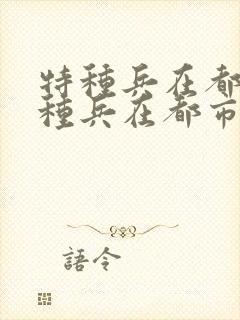 特種兵在都
種兵在都市
語令